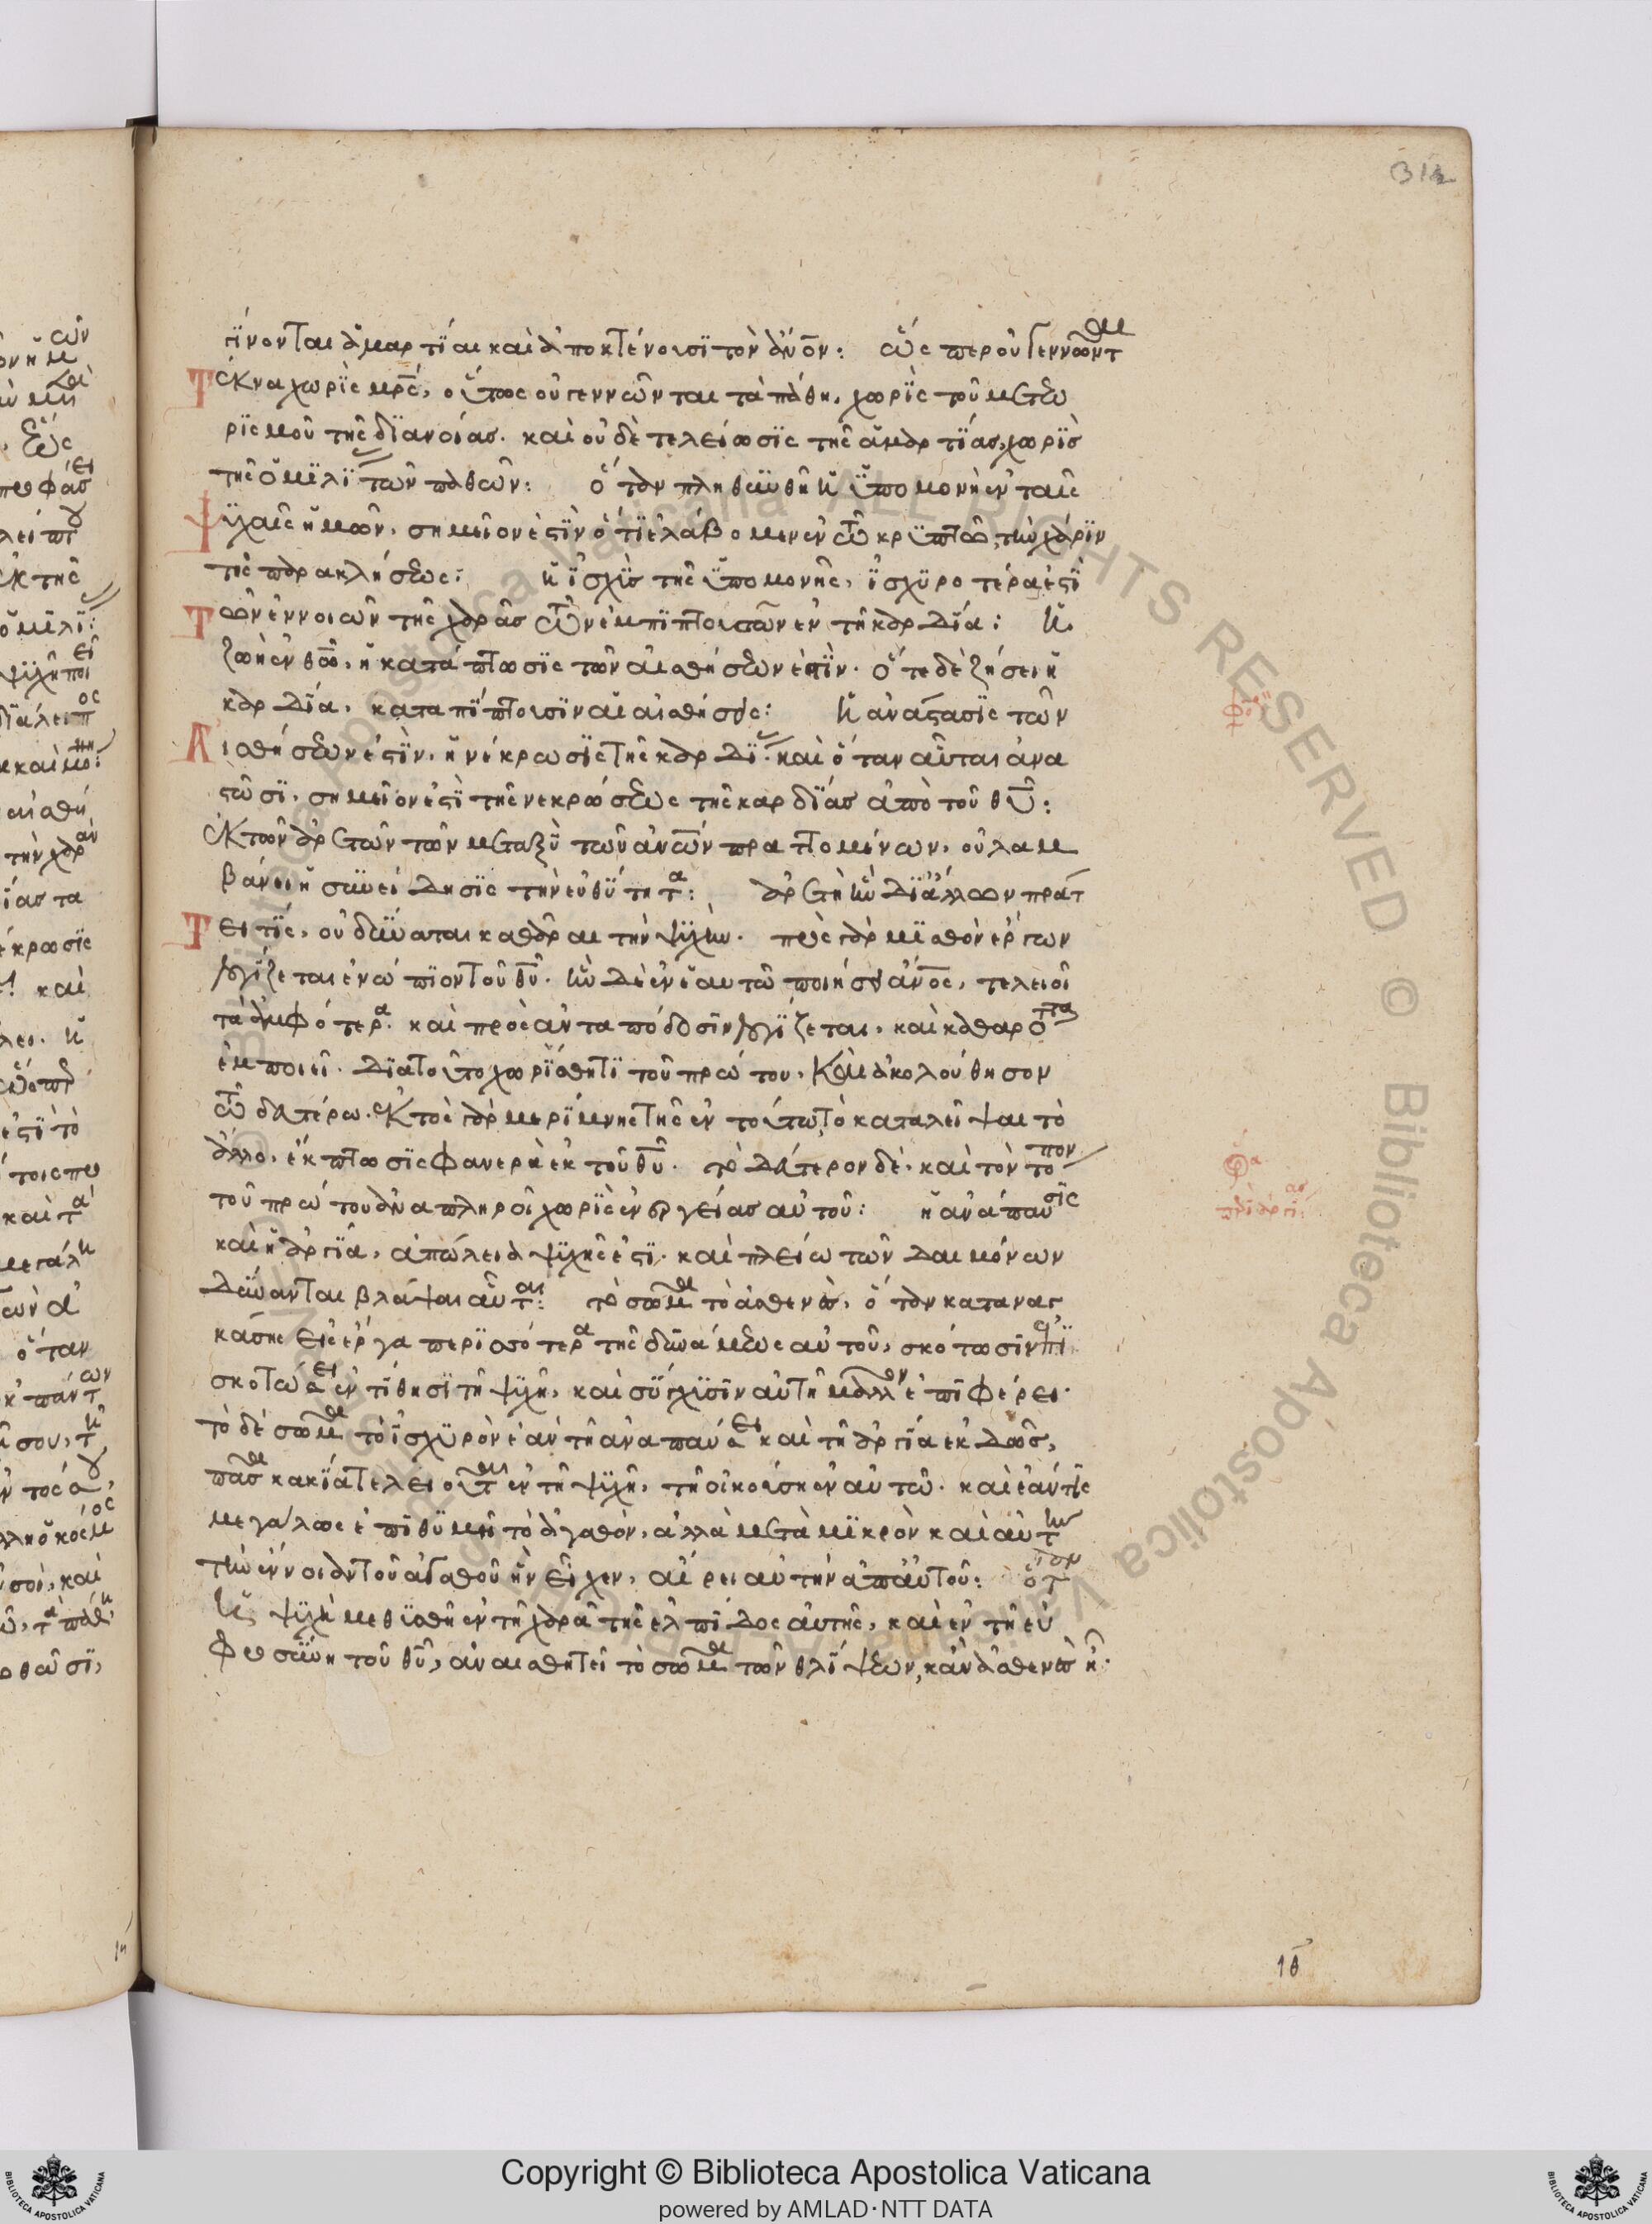 312
γίνονται ἁμαρτίαι καὶ ἀποκτένουσι τὸν ἀνον: ὥσπερ οὐ γεννῶνται
Τέκνα χωρὶς μρς, οὕτως οὐ γεννῶνται τὰ πάθη, χωρὶς τοῦ μετεω
ρισμοῦ τῆς διανοίας. καὶ οὐδὲ τελείωσις τῆς ἁμαρτίας, χωρὶς
τῆς ὁμιλί τῶν παθῶν: ὅταν πληθυνθῆ ἡ ὑπομονὴ ἐν ταῖς
Ψυχαῖς ἡμῶν, σημεῖον ἐστὶν ὅτι ἐλάβομεν ἐν τῶ κρυπτῶ, τὴν χάριν
τῆς παρακλήσεως: ἡ ἰσχὺς τῆς ὑπομονῆς, ἰσχυροτέρα ἐστὶ
Τῶν ἐννοιῶν τῆς χαρᾶς τῶν ἐμπιπτουσῶν ἐν τῆ καρδία: ἡ
ζωὴ ἐν θω, ἡ κατάπτωσις τῶν αἰσθήσεων ἐστὶν. ὅτε δὲ ζήσει ἡ
καρδία, καταπίπτουσιν αἱ αἰσθήσεις: ἡ ἀνάστασις τῶν
Αἰσθήσεων ἐστὶν, ἡ νέκρωσις τῆς καρδί. καὶ ὅταν αὗται ἀνα
στῶσι, σημεῖον ἐστὶ τῆς νεκρώσεως τῆς καρδίας ἀπὸ τοῦ θυ:
ἐκ τῶν ἀρετῶν τῶν μεταξὺ τῶν ἀνων πραττομένων, οὐ λαμ
βάνει ἡ συνείδησις τὴν εὐθύτητα: ἀρετὴν ἣν δι' ἄλλων πράτ
Τει τίς, οὐ δύναται καθᾶραι τὴν ψυχήν. πρὸς γὰρ μισθὸν ἔργων
λογίζεται ἐνώπιον τοῦ θυ. ἣν δὲ ἐν ἑαυτῶ ποιήσει ἀνος, τελειοῖ
τὰ ἀμφότερα. καὶ πρὸς ἀνταπόδοσιν λογίζεται, καὶ καθαρότητα
ἐμποιεῖ. διατοῦτο χωρίσθητι τοῦ πρώτου, καὶ ἀκολούθησον
τῶ δατέρω. ἐκτὸς γὰρ μερίμνης τῆς ἐν τούτω, τὸ καταλεῖψαι τὸ
ἄλλο, ἔκπτωσις φανερὰ ἐκ τοῦ θυ. τὸ δάτερον δὲ, καὶ τὸν τόπον
τοῦ πρώτου ἀναπληροῖ χωρὶς ἐνεργείας αὐτοῦ: ἡ ἀνάπαυσις
καὶ ἡ ἀργία, ἀπώλεια ψυχῆς ἐστὶ. καὶ πλείω τῶν δαιμόνων
δύνανται βλάψαι αὗται: τὸ σῶμα τὸ ἀσθενὲς, ὅταν καταναγ
κάσης εἰς ἔργα περισσότερα τῆς δυνάμεως αὐτοῦ, σκότωσιν ἐπὶ
σκοτώσει ἐντίθησι τῆ ψυχῆ, καὶ σύγχυσιν αὐτῆ μᾶλλον ἐπιφέρει.
τὸ δὲ σῶμα τὸ ἰσχυρὸν ἐὰν τῆ ἀναπαύσει καὶ τῆ ἀργία ἐκδῶς,
πᾶσα κακία τελειοῦται ἐν τῆ ψυχῆ, τῆ οἰκούση ἐν αὐτῶ. καὶ ἐάν τις
μεγάλως ἐπιθυμῆ τὸ ἀγαθὸν, ἀλλὰ μετὰ μικρὸν καὶ αὐτὴν
τὴν ἔννοιαν τοῦ ἀγαθοῦ ἣν εἶχεν, αἴρει αὐτὴν ἀπαὐτοῦ: ὅταν
ἡ ψυχὴ μεθυσθῆ ἐν τῆ χαρᾶ τῆς ἐλπίδος αὐτῆς, καὶ ἐν τῆ εὐ
φροσύνη τοῦ θυ, ἀναισθητεῖ τὸ σῶμα τῶν θλίψεων, κἂν ἀσθενὲς ἦ.
περὶ ἀργίας
ιθ
Copyright © Biblioteca Apostolica Vaticana
powered by AMLAD·NTT DATA